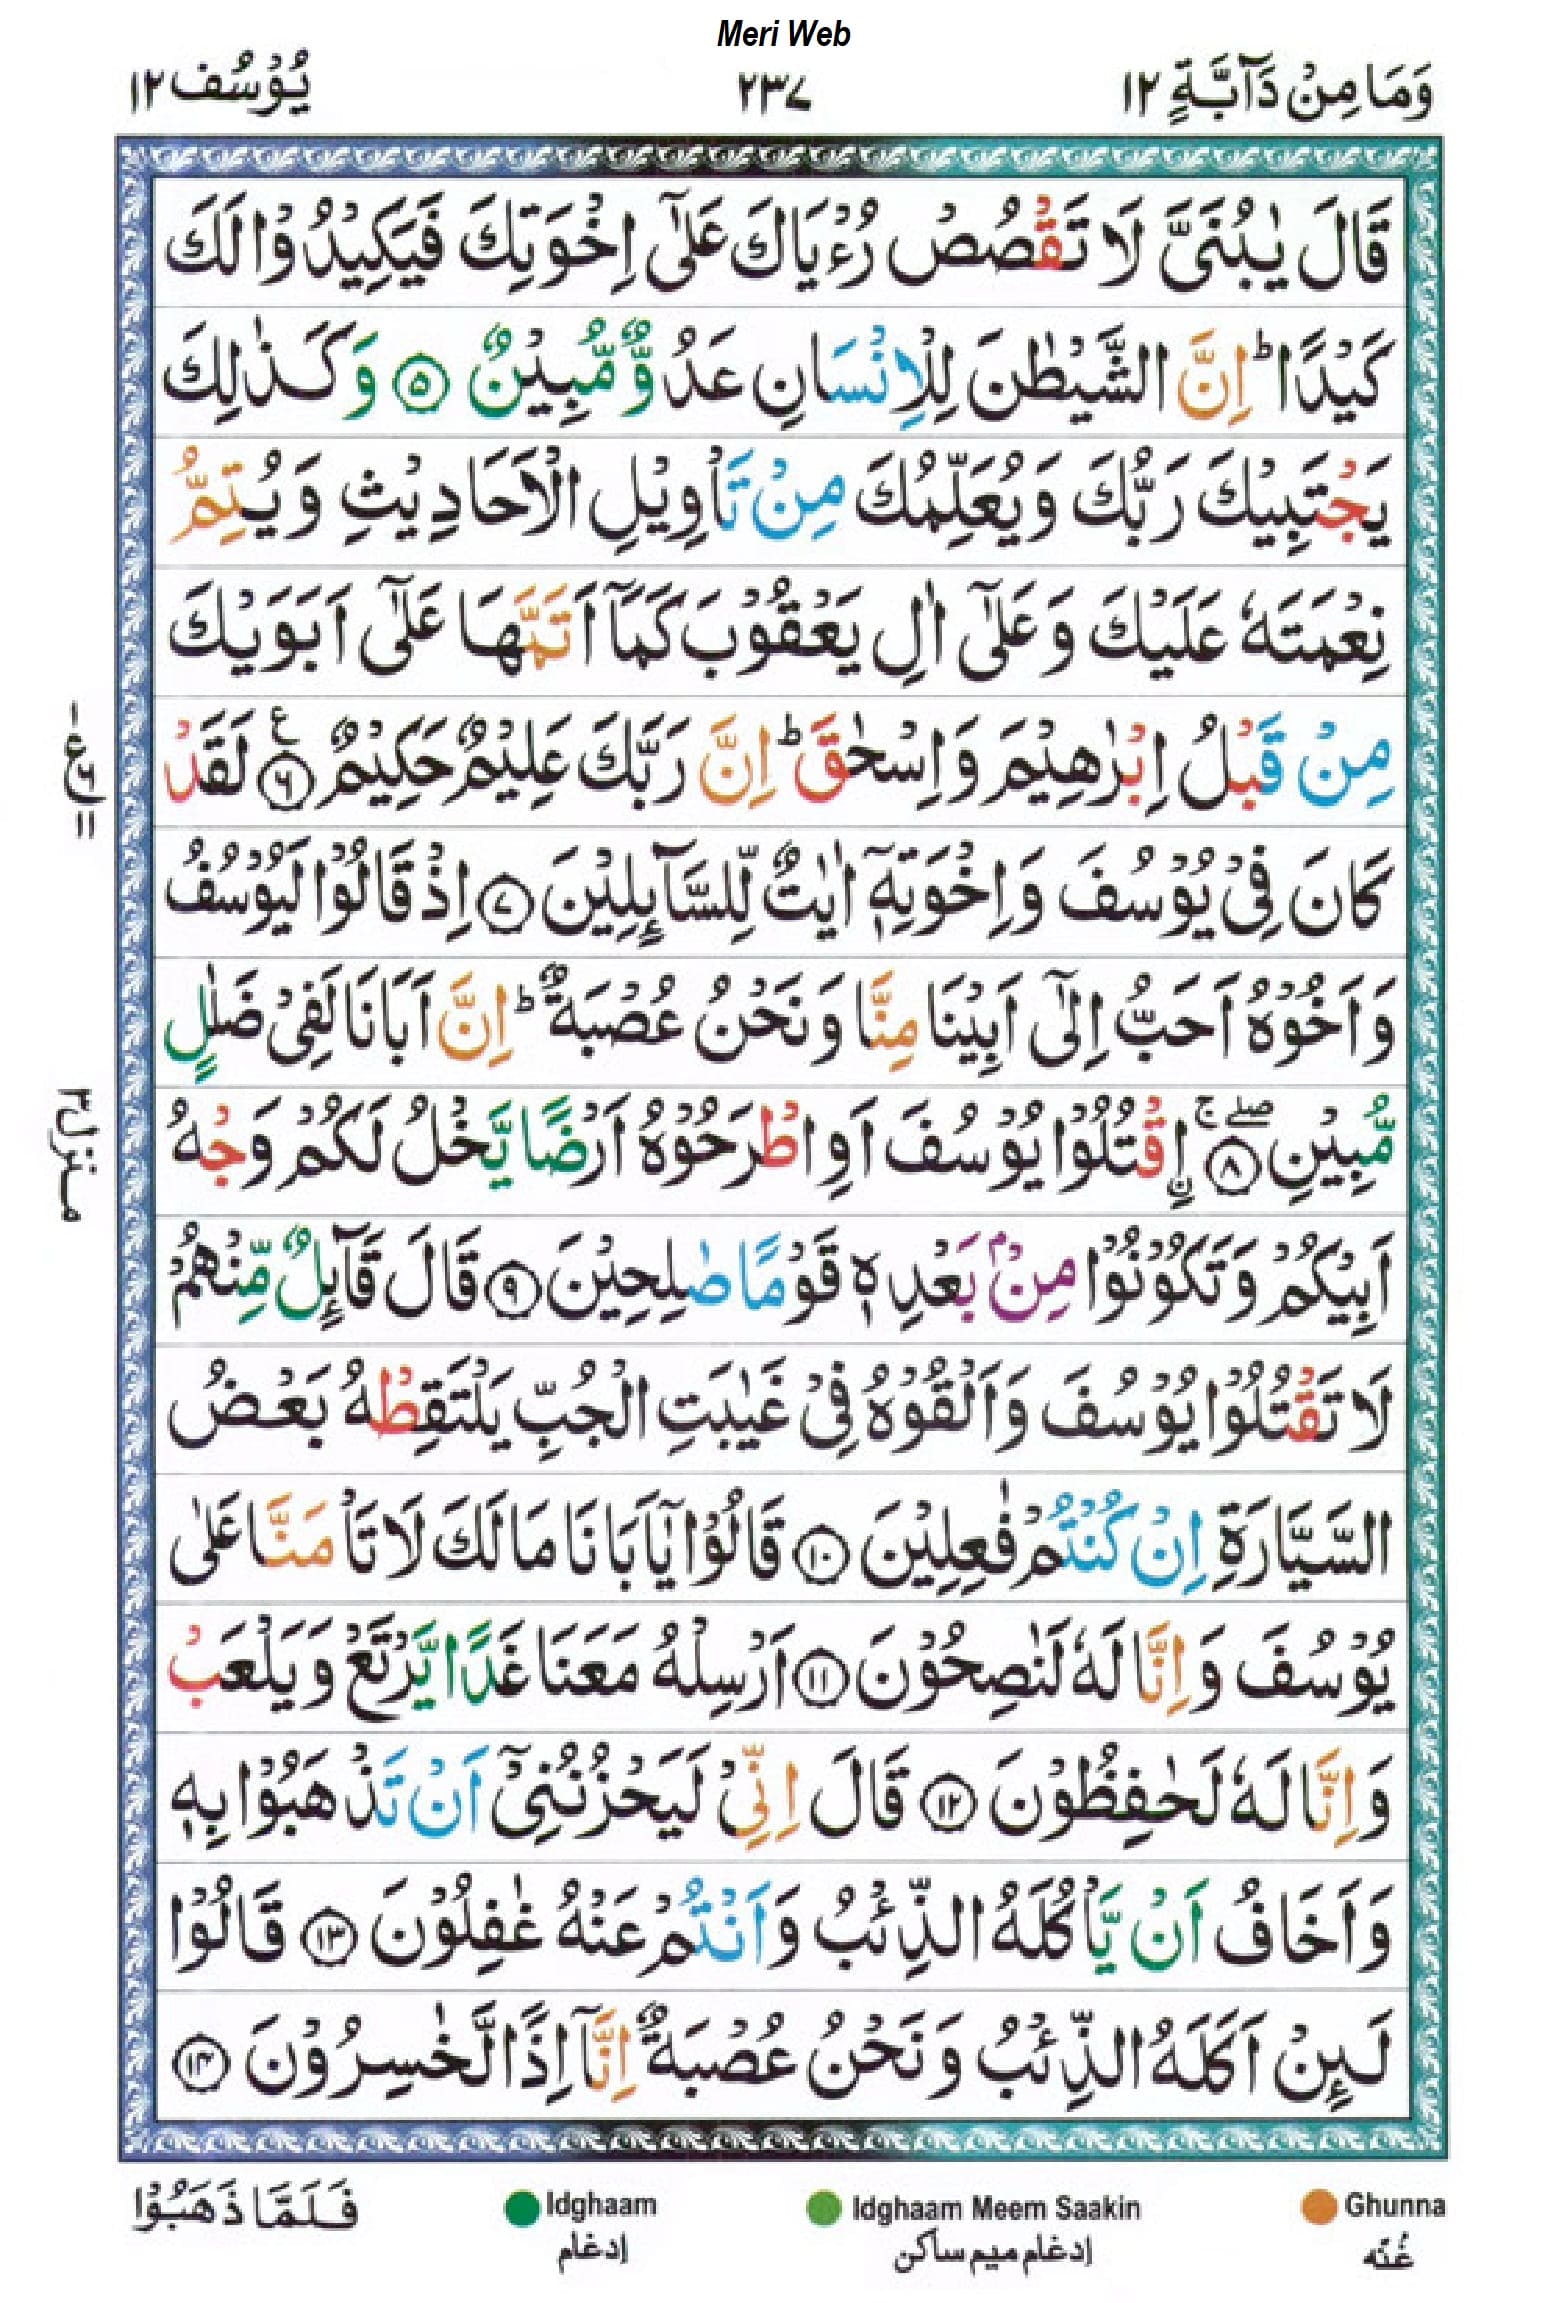 Meri Web
وَمَا مِنْ دَآبَّةٍ ١٢
٢٣٧
يُوْسُف ١٢
قَالَ يٰبُنَىَّ لَا تَقْصُصْ رُءْيَاكَ عَلٰٓى اِخْوَتِكَ فَيَكِيْدُوْا لَكَ
كَيْدًا ؕ اِنَّ الشَّيْطٰنَ لِلْاِنْسَانِ عَدُوٌّ مُّبِيْنٌ ۝٥ وَكَذٰلِكَ
يَجْتَبِيْكَ رَبُّكَ وَيُعَلِّمُكَ مِنْ تَاْوِيْلِ الْاَحَادِيْثِ وَيُتِمُّ
نِعْمَتَهٗ عَلَيْكَ وَعَلٰٓى اٰلِ يَعْقُوْبَ كَمَآ اَتَمَّهَا عَلٰٓى اَبَوَيْكَ
مِنْ قَبْلُ اِبْرٰهِيْمَ وَاِسْحٰقَ ؕ اِنَّ رَبَّكَ عَلِيْمٌ حَكِيْمٌ ۝٦ ع لَقَدْ
كَانَ فِىْ يُوْسُفَ وَاِخْوَتِهٖٓ اٰيٰتٌ لِّلسَّآئِلِيْنَ ۝٧ اِذْ قَالُوْا لَيُوْسُفُ
وَاَخُوْهُ اَحَبُّ اِلٰٓى اَبِيْنَا مِنَّا وَنَحْنُ عُصْبَةٌ ؕ اِنَّ اَبَانَا لَفِىْ ضَلٰلٍ
مُّبِيْنِ ۝٨ۖۚ اِۨقْتُلُوْا يُوْسُفَ اَوِ اطْرَحُوْهُ اَرْضًا يَّخْلُ لَكُمْ وَجْهُ
اَبِيْكُمْ وَتَكُوْنُوْا مِنْۢ بَعْدِهٖ قَوْمًا صٰلِحِيْنَ ۝٩ قَالَ قَآئِلٌ مِّنْهُمْ
لَا تَقْتُلُوْا يُوْسُفَ وَاَلْقُوْهُ فِىْ غَيٰبَتِ الْجُبِّ يَلْتَقِطْهُ بَعْضُ
السَّيَّارَةِ اِنْ كُنْتُمْ فٰعِلِيْنَ ۝١٠ قَالُوْا يٰٓاَبَانَا مَا لَكَ لَا تَاْمَنَّا عَلٰى
يُوْسُفَ وَاِنَّا لَهٗ لَنٰصِحُوْنَ ۝١١ اَرْسِلْهُ مَعَنَا غَدًا يَّرْتَعْ وَيَلْعَبْ
وَاِنَّا لَهٗ لَحٰفِظُوْنَ ۝١٢ قَالَ اِنِّىْ لَيَحْزُنُنِىْٓ اَنْ تَذْهَبُوْا بِهٖ
وَاَخَافُ اَنْ يَّاْكُلَهُ الذِّئْبُ وَاَنْتُمْ عَنْهُ غٰفِلُوْنَ ۝١٣ قَالُوْا
لَئِنْ اَكَلَهُ الذِّئْبُ وَنَحْنُ عُصْبَةٌ اِنَّآ اِذًا لَّخٰسِرُوْنَ ۝١٤
منزل ٣
فَلَمَّا ذَهَبُوْا
Idghaam
إدغام
Idghaam Meem Saakin
إدغام ميم ساكن
Ghunna
غُنّه